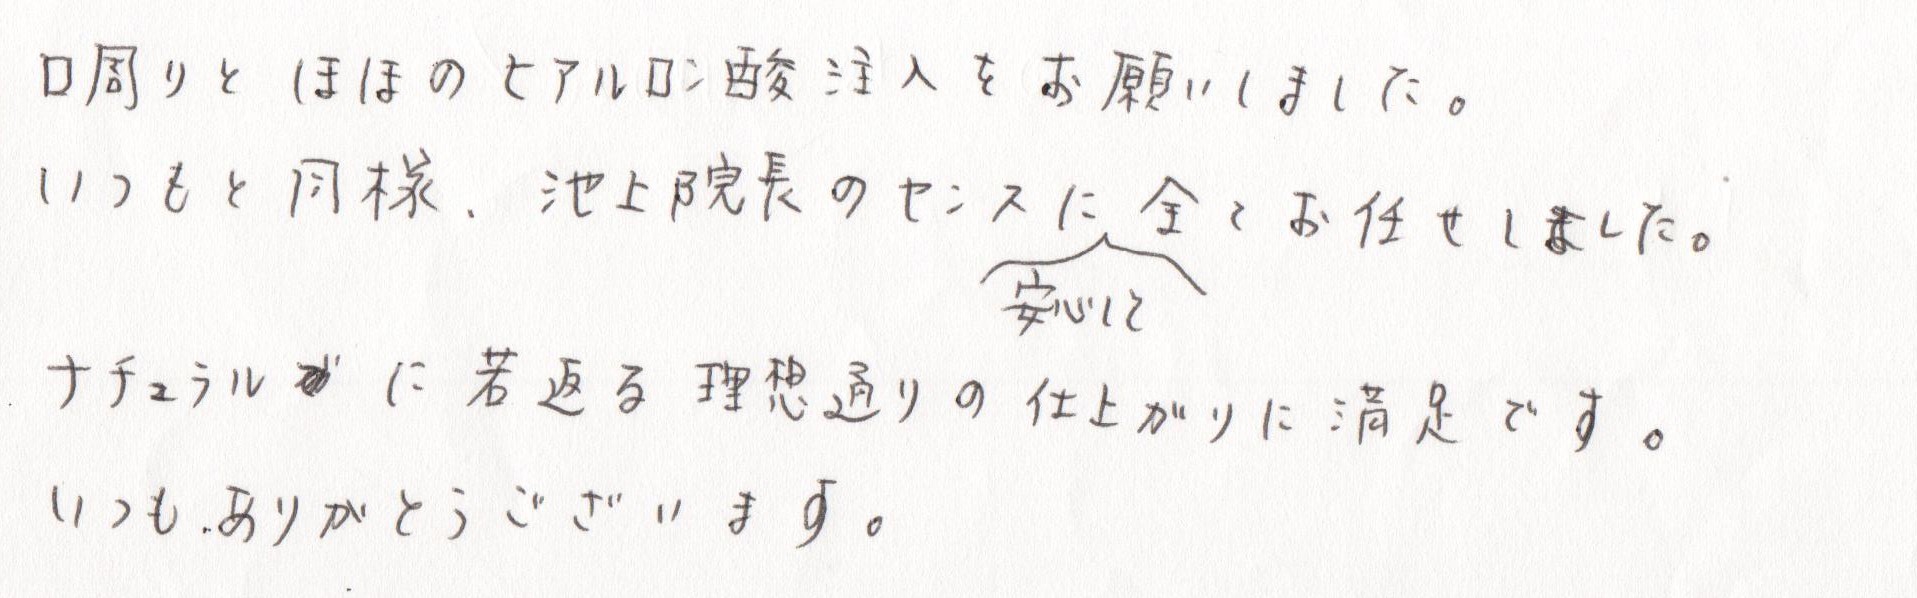 口周りとほほのヒアルロン酸注入をお願いしました。
いつもと同様、池上院長のセンスに全てお任せしました。
安心して
ナチュラルに若返る理想通りの仕上がりに満足です。
いつもありがとうございます。